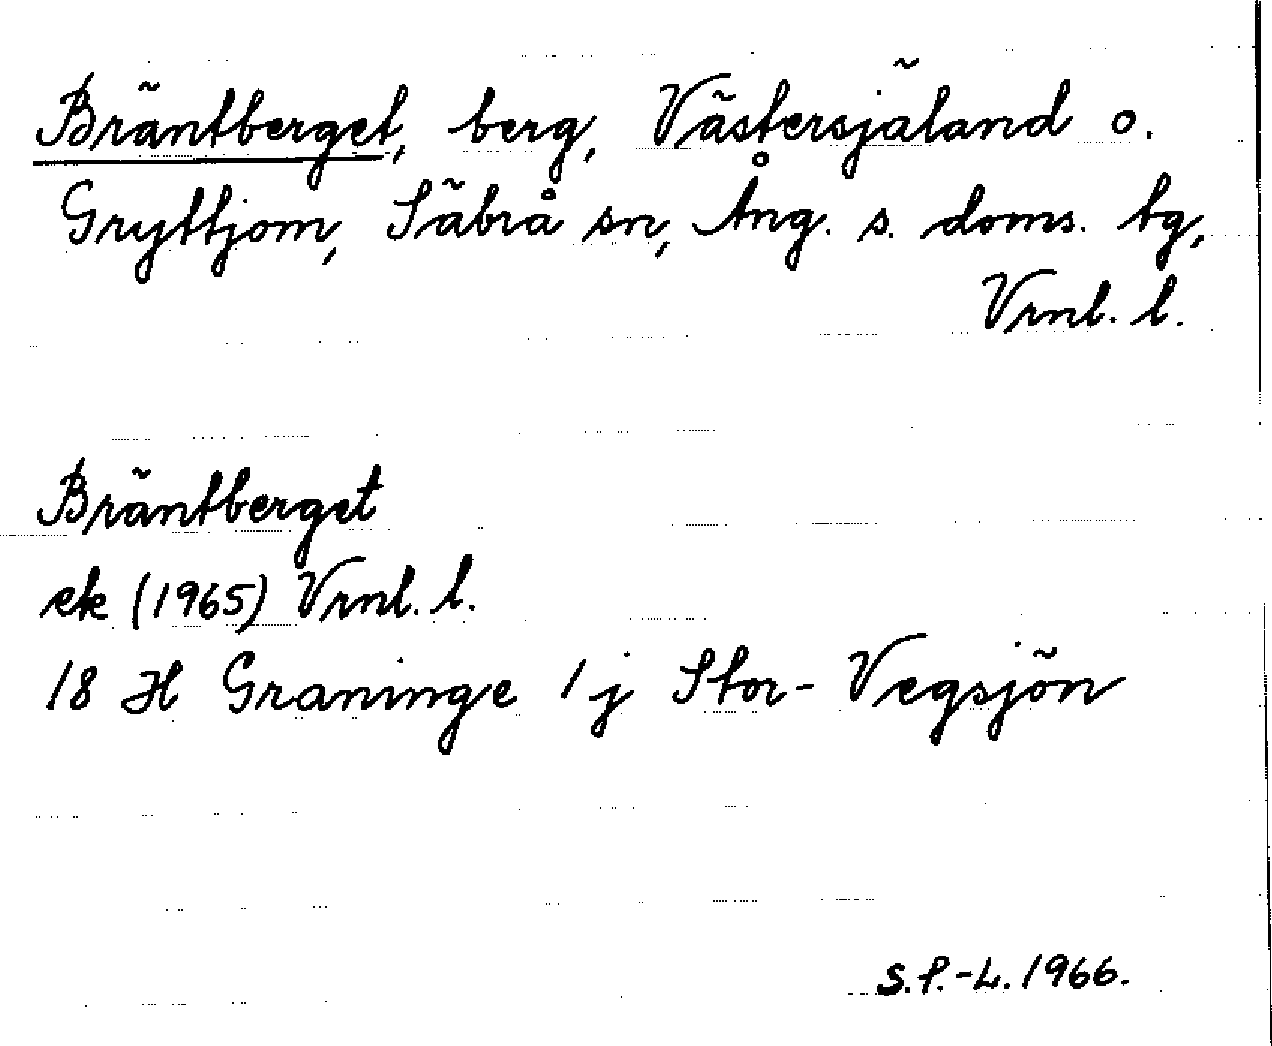 Bräntberget, berg, Västersjäland o.
Gryttjom, Säbrå sn, Ång. s. doms. tg,
Vrnl. l.
Bräntberget
ek (1965) Vrnl. l.
18 H Graninge 1 j Stor-Vegsjön
S.P.-L. 1966.